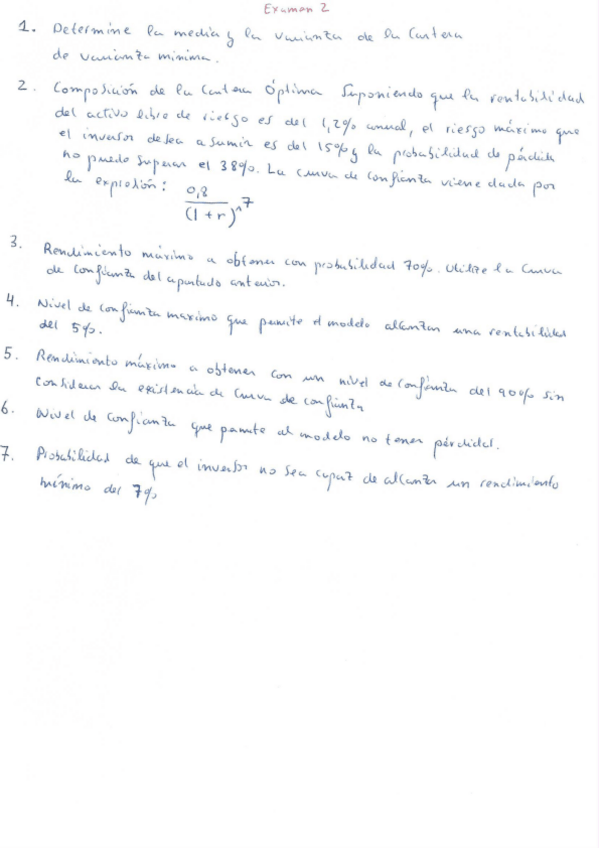 Examen 2
1. Determine la media y la varianza de la Cartera
de varianza mínima.
2. Composición de la Cartera Óptima Suponiendo que la rentabilidad
del activo libre de riesgo es del 1,2% anual, el riesgo máximo que
el inversor desea asumir es del 15% y la probabilidad de pérdida
no puede superar el 38%. La curva de confianza viene dada por
la expresión: 0,8
(1+r)^7
3. Rendimiento máximo a obtener con probabilidad 70%. Utilize la Curva
de confianza del apartado anterior.
4. Nivel de confianza maximo que permite el modelo alcanzar una rentabilidad
del 5%.
5. Rendimiento máximo a obtener con un nivel de confianza del 90% sin
considerar la existencia de curva de confianza
6. Nivel de confianza que permite al modelo no tener pérdidas.
7. Probabilidad de que el inversor no sea capaz de alcanzar un rendimiento
mínimo del 7%